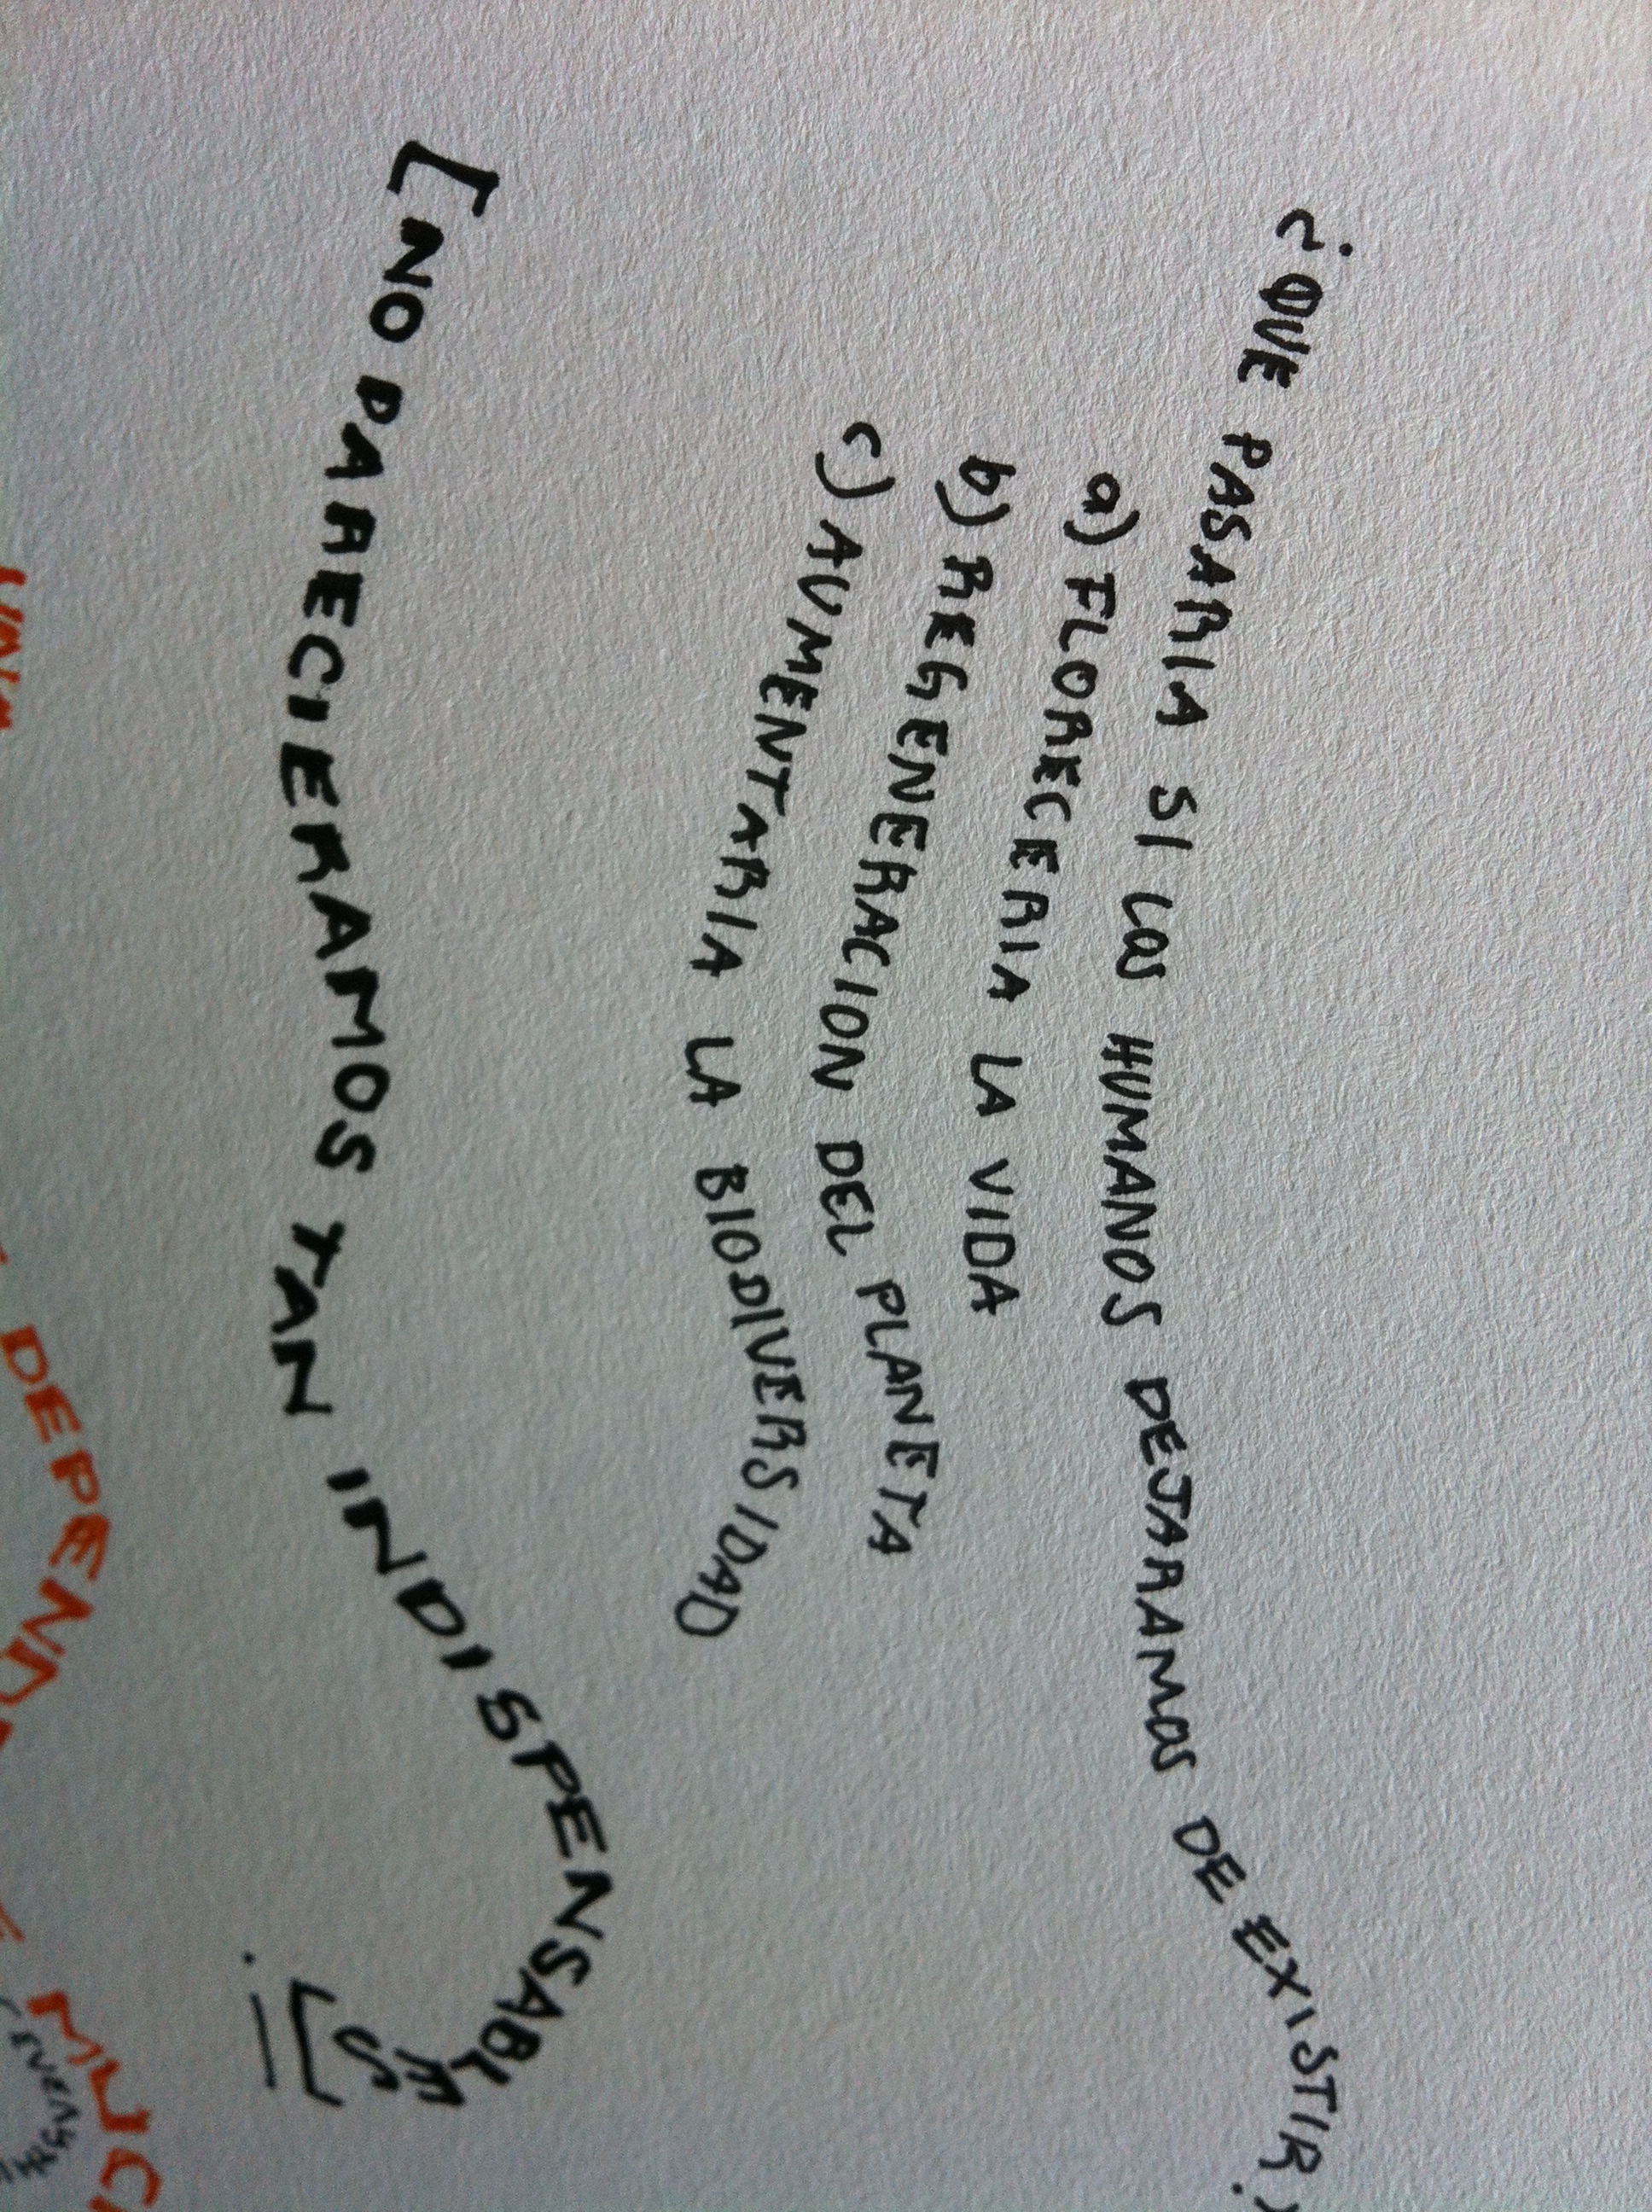 ¿QUE PASARIA SI LOS HUMANOS DEJARAMOS DE EXISTIR?
a) FLORECERIA LA VIDA
b) REGENERACION DEL PLANETA
c) AUMENTARIA LA BIODIVERSIDAD
[NO PARECIERAMOS TAN INDISPENSABLES]!
DEPEN